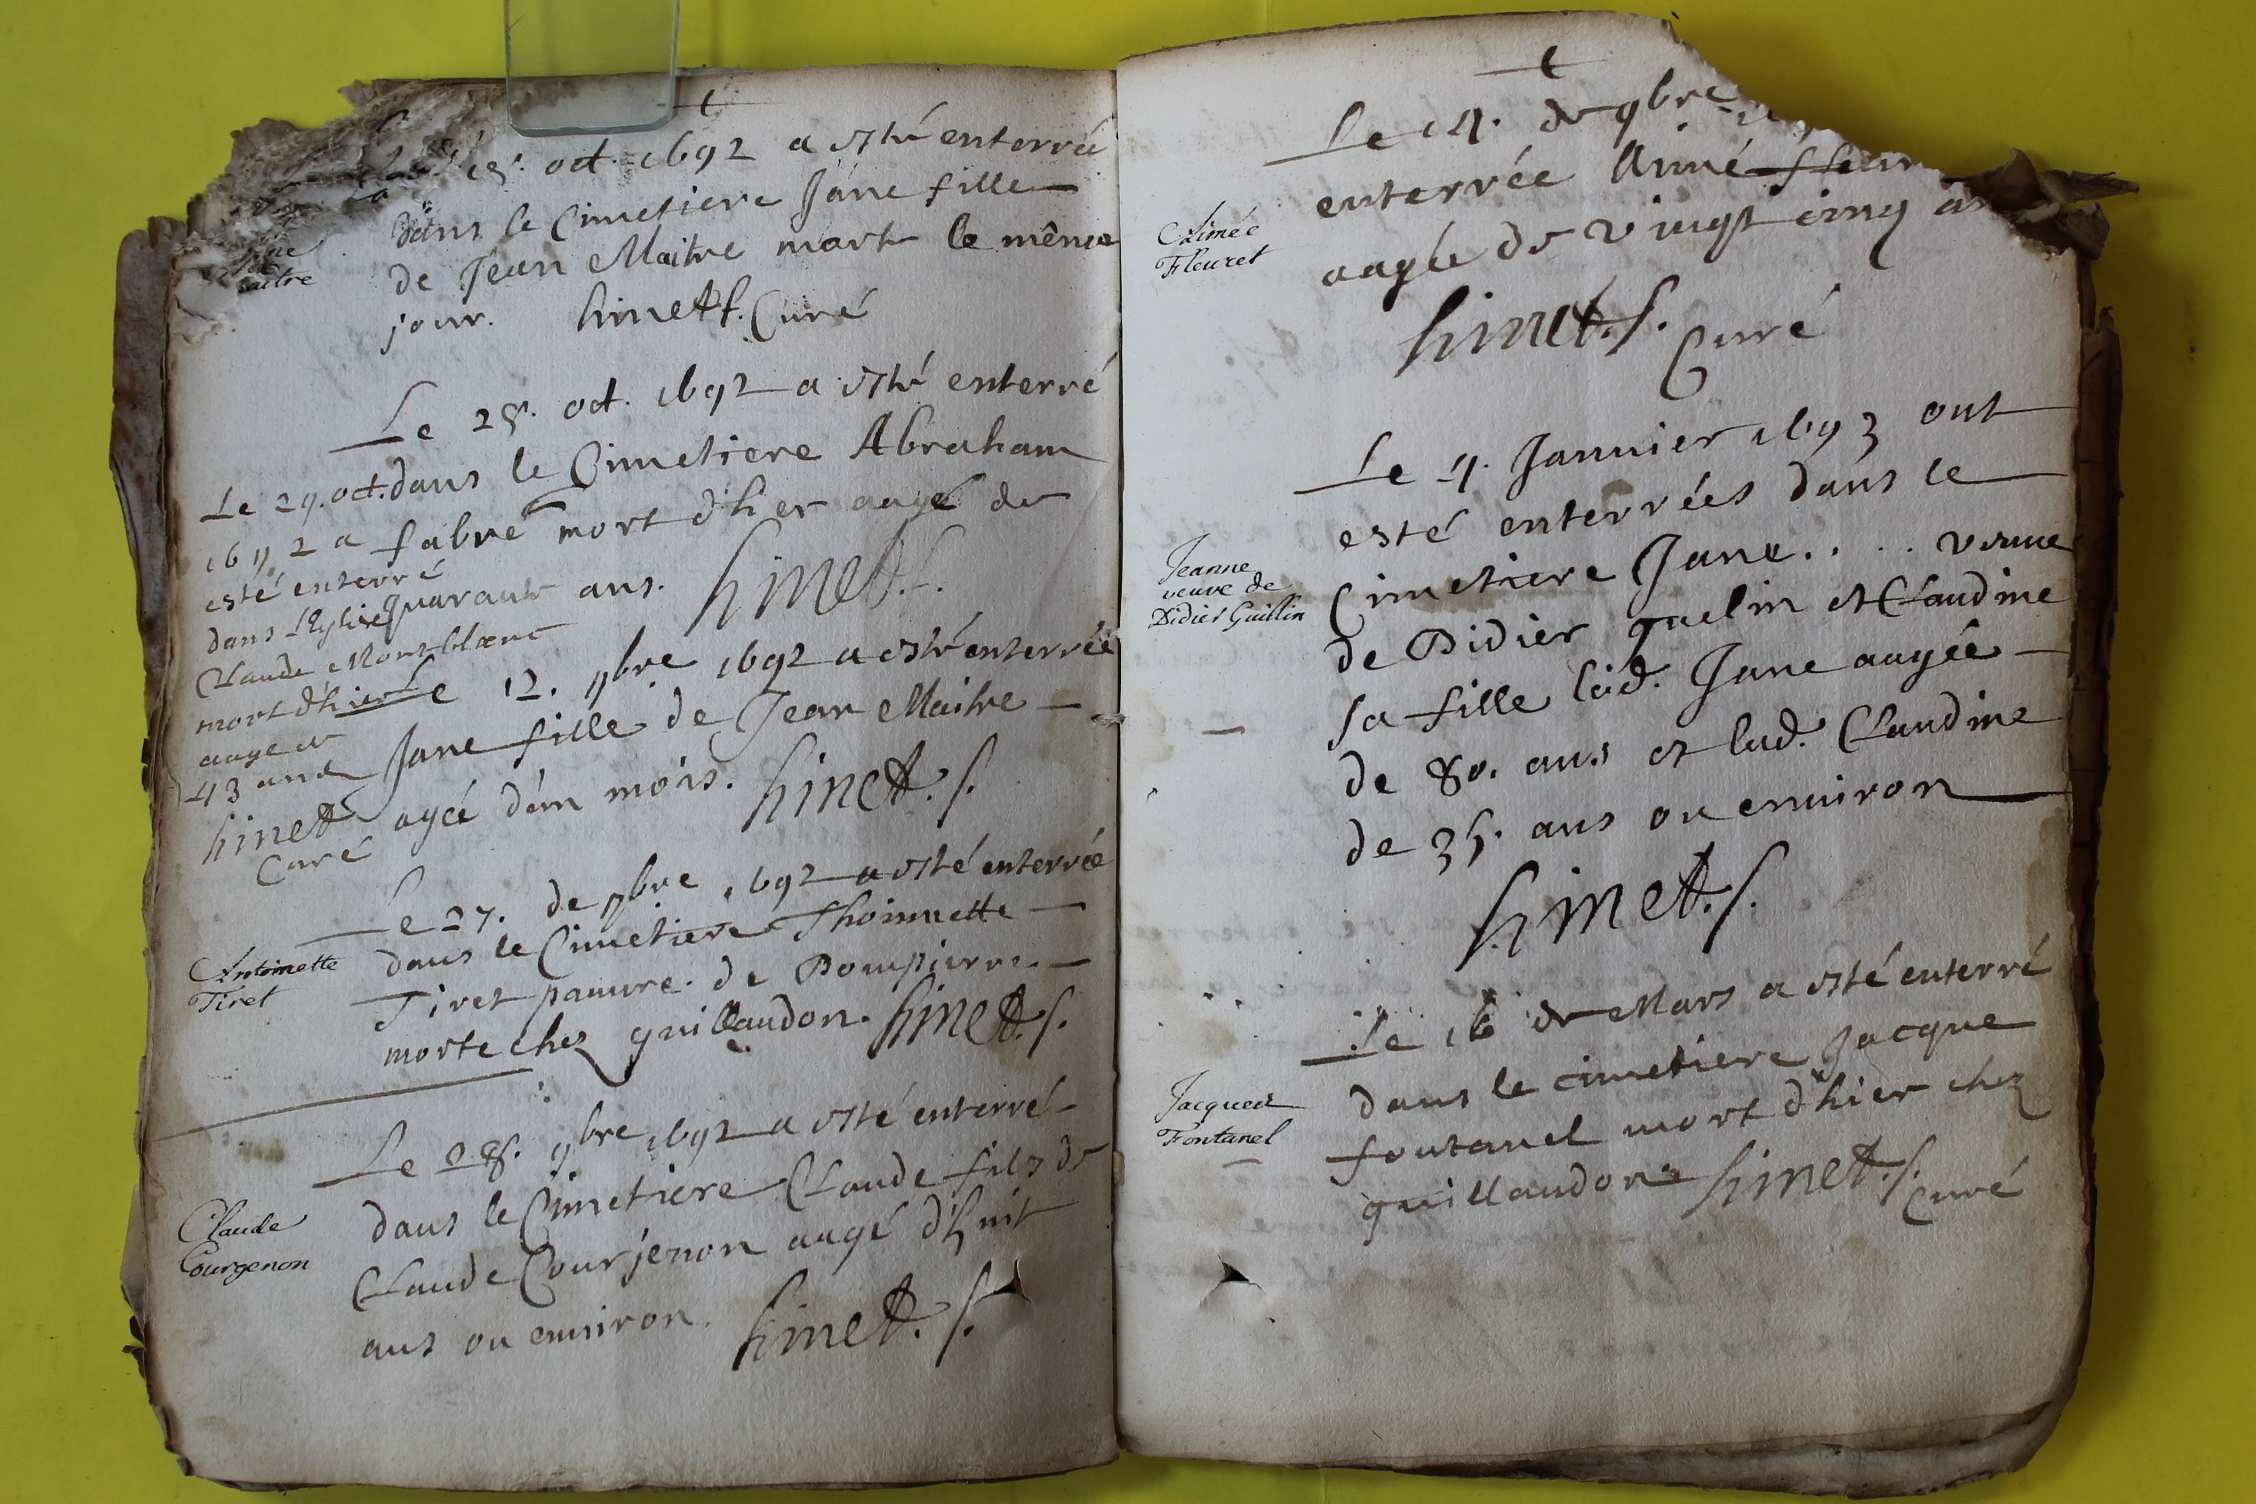 oct. 1692 a esté enterrée
dans le Cimetiere Jane fille
de Jean Maitre morte le même
jour. hinet p. Curé
Le 28. oct. 1692 a esté enterré
dans le Cimetiere Abraham
fabre mort d'hier aagé de
quarante ans. hinet p.
Le 29. oct.
1692 a
esté enterré
dans l'Eglise
Claude Montblanc
mort d'hier
aagé de
43 ans
hinet
Curé
Le 12. 9bre 1692 a esté enterrée
Jane fille de Jean Maitre
agée d'un mois. hinet. p.
Le 27. de 9bre 1692 a esté enterrée
dans le Cimetiere Thoinnette
Tiret pauvre de Dompierre
morte chez guillaudon. hinet p.
Antoinette
Tiret
Le 28. 9bre 1692 a esté enterré
dans le Cimetiere Claude fils de
Claude Courjenon aagé d'huit
ans ou environ. hinet. p.
Claude
Courgenon
Le 14. de 9bre
enterrée Aimé
aagée de vingt cinq
hinet. p.
Curé
Aimée
Fleuret
Le 4. Januier 1693 ont
esté enterrées dans le
Cimetiere Jane . . . . veuue
de Didier guelin et Claudine
sa fille lad. Jane aagée
de 80. ans et lad. Claudine
de 35. ans ou enuiron
hinet. p.
Jeanne
veuve de
Didier Guillin
Le 16 de Mars a esté enterré
dans le cimetiere Jacque
fontanel mort d'hier chez
guillaudon hinet. p.
Curé
Jacques
Fontanel